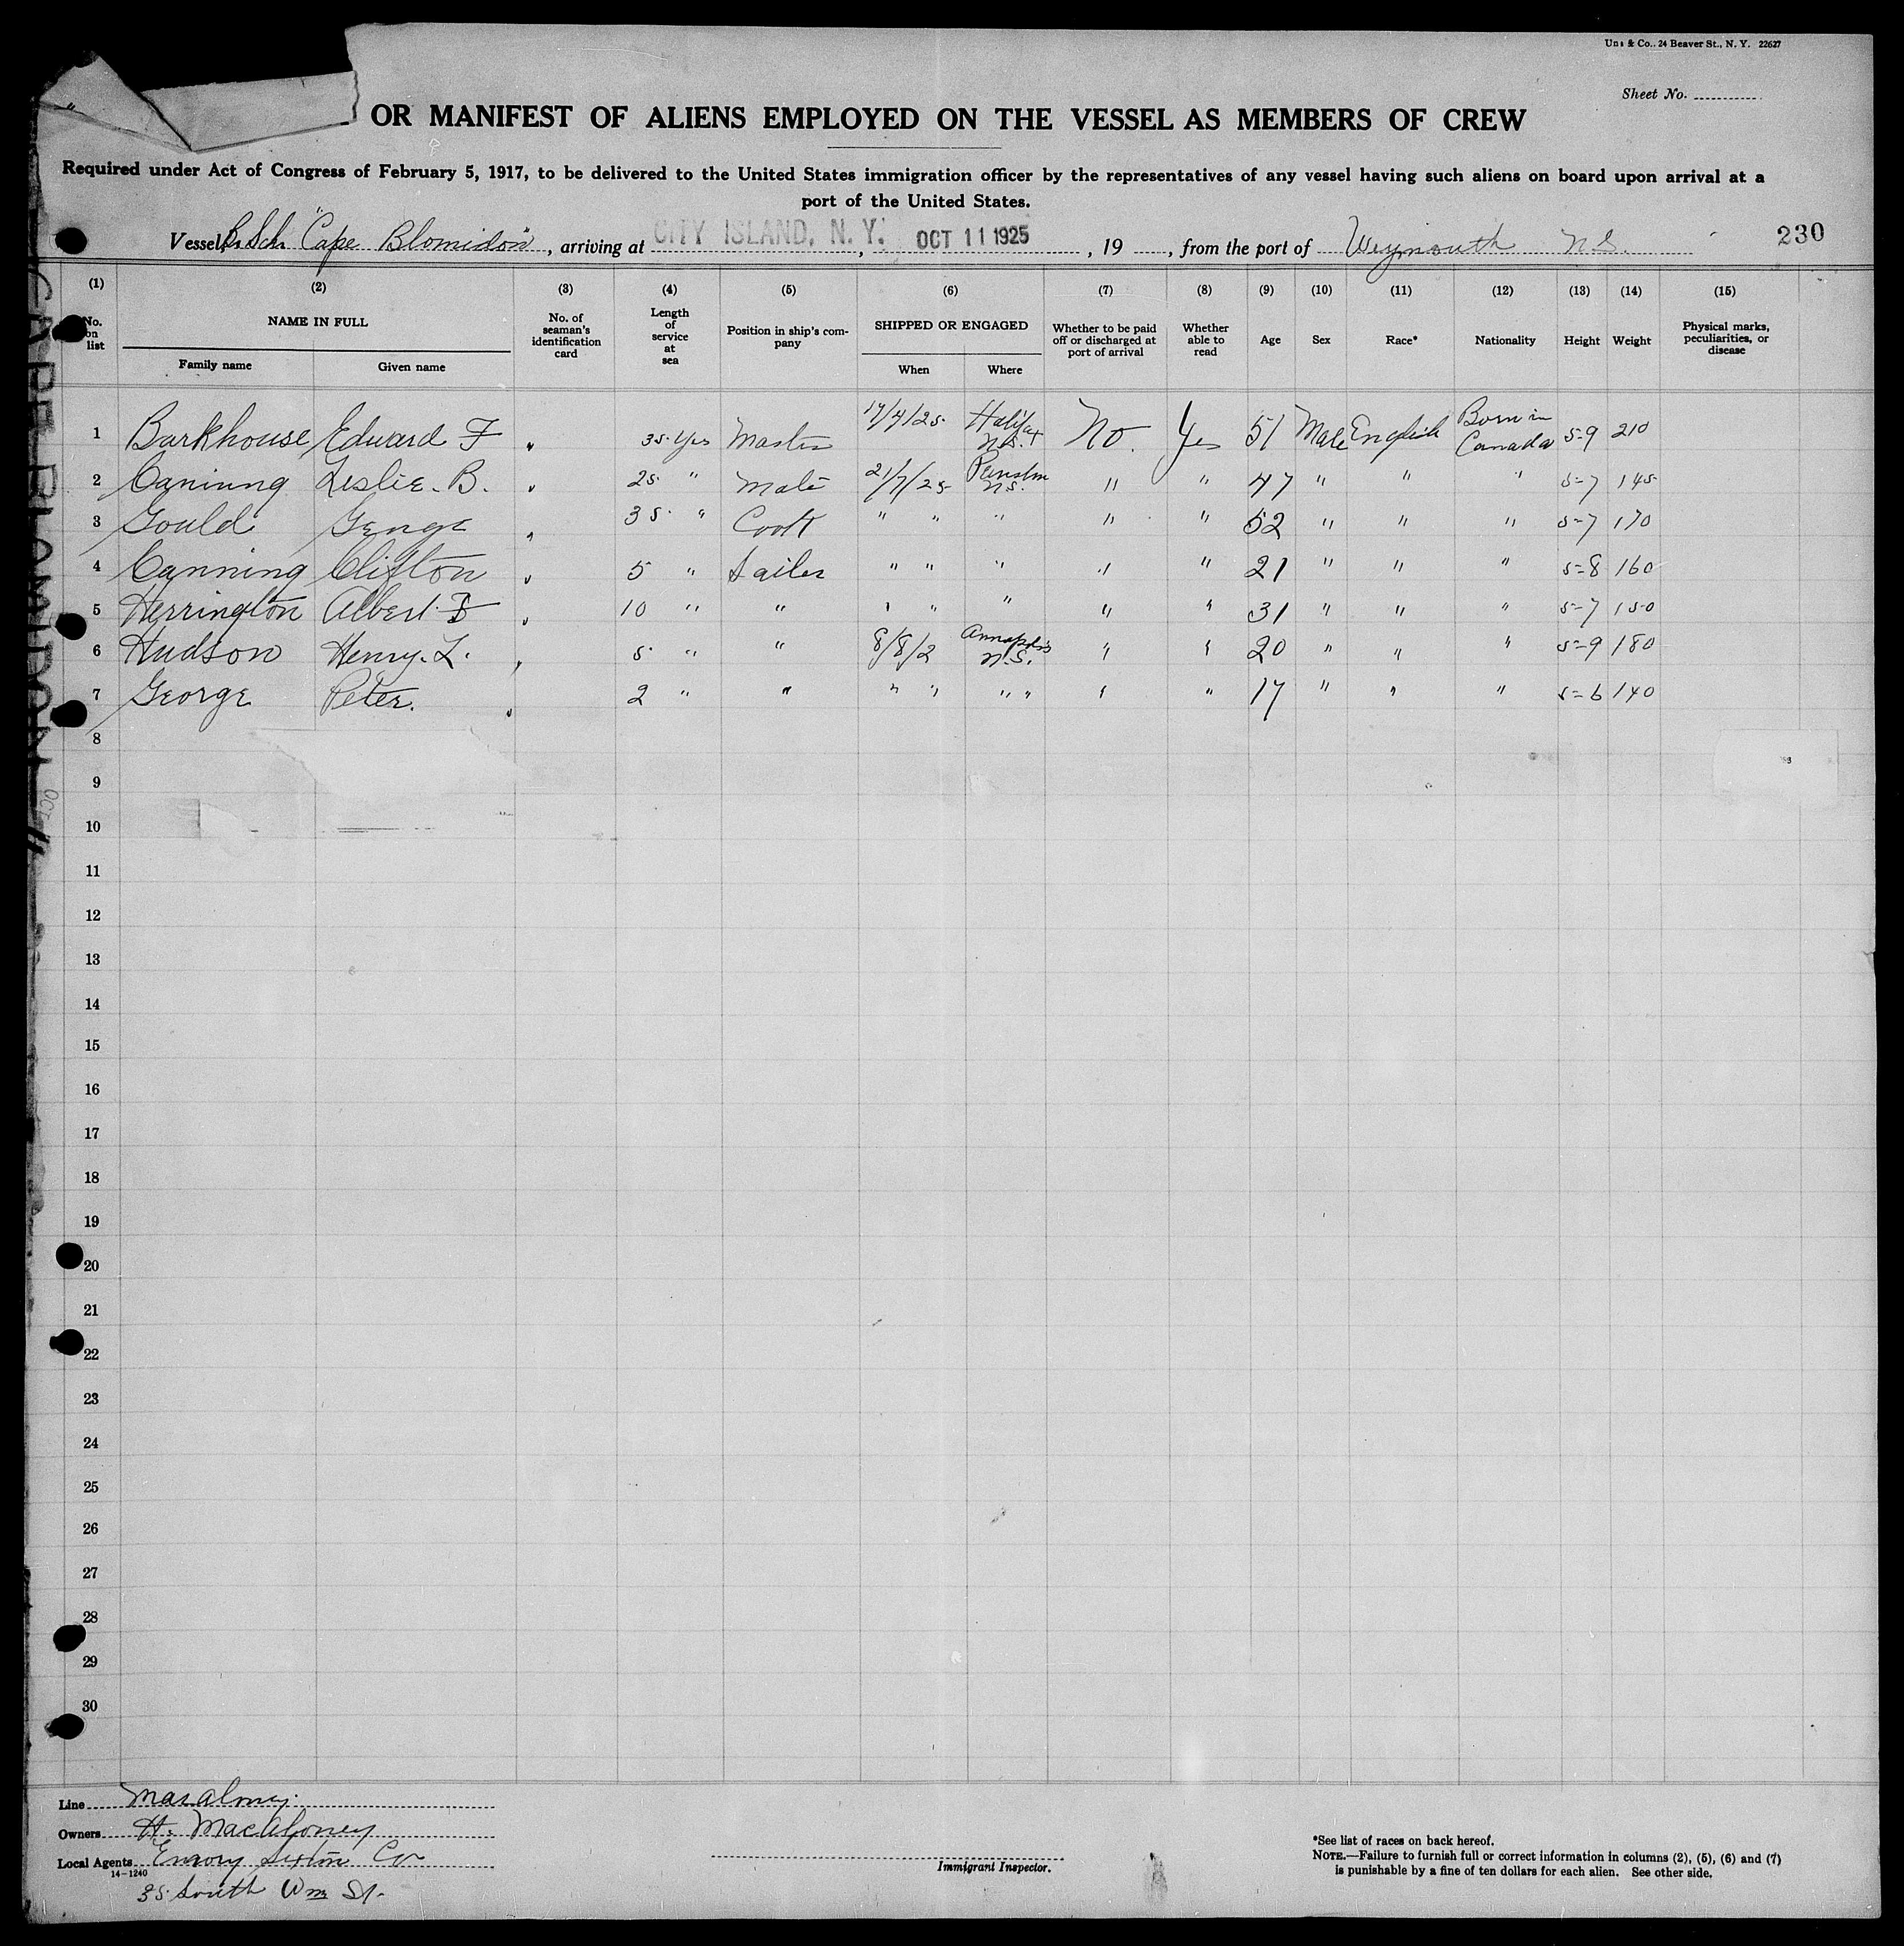 Uns & Co., 24 Beaver St., N. Y. 22627
Sheet No.
OR MANIFEST OF ALIENS EMPLOYED ON THE VESSEL AS MEMBERS OF CREW
Required under Act of Congress of February 5, 1917, to be delivered to the United States immigration officer by the representatives of any vessel having such aliens on board upon arrival at a
port of the United States.
Vessel B. Sch. "Cape Blomidon", arriving at CITY ISLAND, N. Y., OCT 11 1925, 19, from the port of Weymouth N.S. 230
(1) (2) (3) (4) (5) (6) (7) (8) (9) (10) (11) (12) (13) (14) (15)
No. on list NAME IN FULL Family name Given name No. of seaman's identification card Length of service at sea Position in ship's company SHIPPED OR ENGAGED When Where Whether to be paid off or discharged at port of arrival Whether able to read Age Sex Race* Nationality Height Weight Physical marks, peculiarities, or disease
1 Barkhouse Edward F 35 Yrs Master 17/4/25 Halifax N.S. No. Yes 51 Male English Born in Canada 5=9 210
2 Canning Leslie. B. 25 " Mate 21/7/25 N.S. " " 47 " " " 5=7 145
3 Gould George 35 " Cook " " " " " 52 " " " 5=7 170
4 Canning Clifton 5 " Sailer " " " " " 21 " " " 5=8 160
5 Herrington Albert 10 " " " " " " " 31 " " " 5=7 150
6 Hudson Henry. L. 5 " " 8/8/2 Annapolis N.S. " " 20 " " " 5=9 180
7 George Peter. 2 " " " " " " " " 17 " " " 5=6 140
8
9
10
11
12
13
14
15
16
17
18
19
20
21
22
23
24
25
26
27
28
29
30
CAPE BLOMIDON OCT 11
Line MacAloney.
Owners H. MacAloney
Local Agents Emory Sexton Co
14-1240
35 South Wm St.
Immigrant Inspector.
*See list of races on back hereof.
NOTE.—Failure to furnish full or correct information in columns (2), (5), (6) and (7)
is punishable by a fine of ten dollars for each alien. See other side.